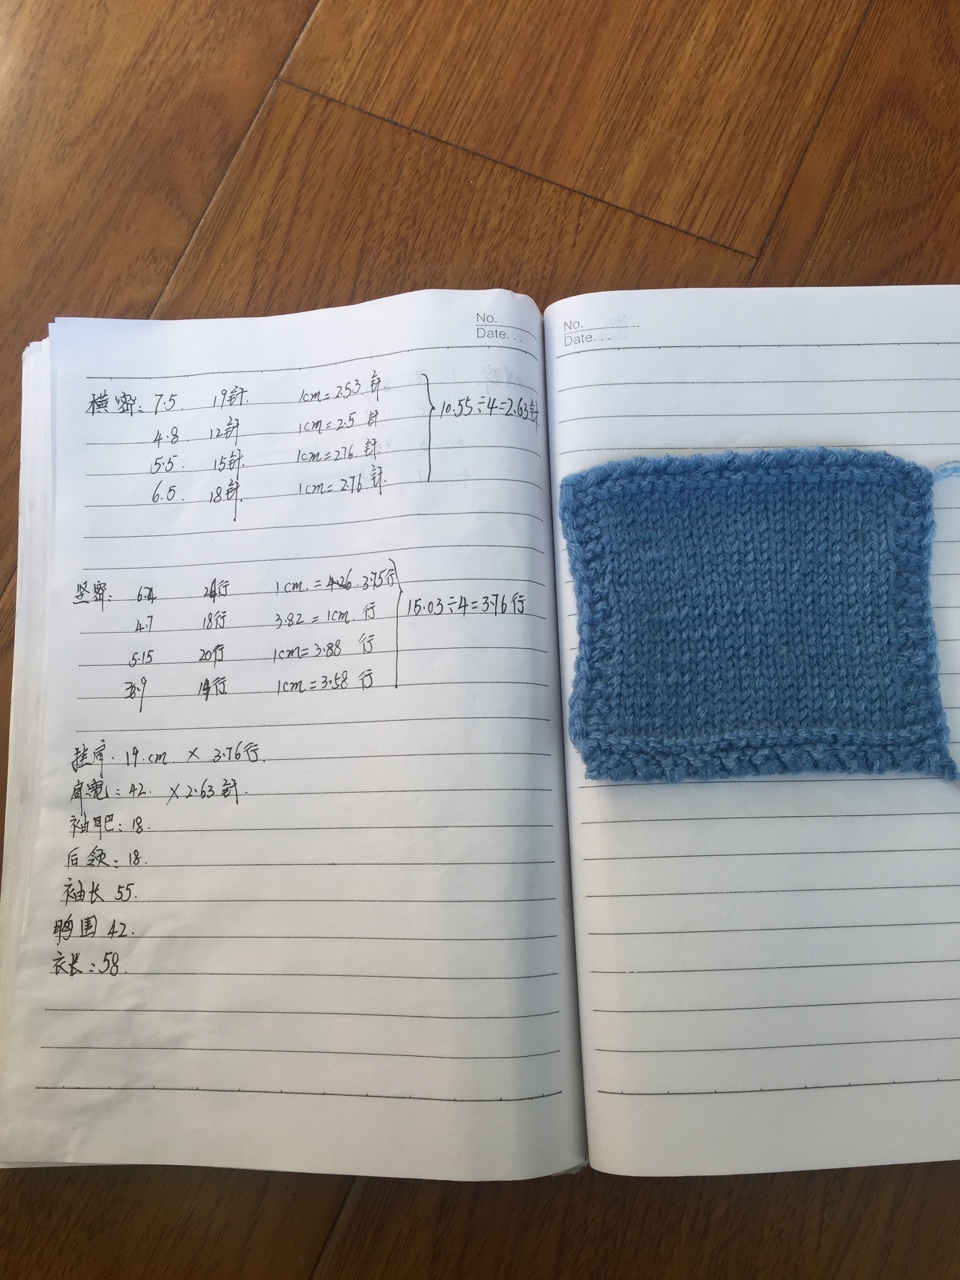 No.
Date...
横密: 7.5. 19针. 1cm=2.53针
4.8 12针 1cm=2.5针
5.5. 15针. 1cm=276针.
6.5. 18针. 1cm=2.76针.
10.55÷4=2.63针
竖密: 24行 1cm.= 3.75行
4.7 18行 3.82=1cm.行
5.15 20行 1cm=3.88 行
1cm=3.58 行
15.03÷4=3.76行
19.cm × 3.76行.
肩宽:42. ×2.63针.
袖肥:18.
后领:18.
袖长 55.
胸围 42.
衣长:58.
No.
Date...